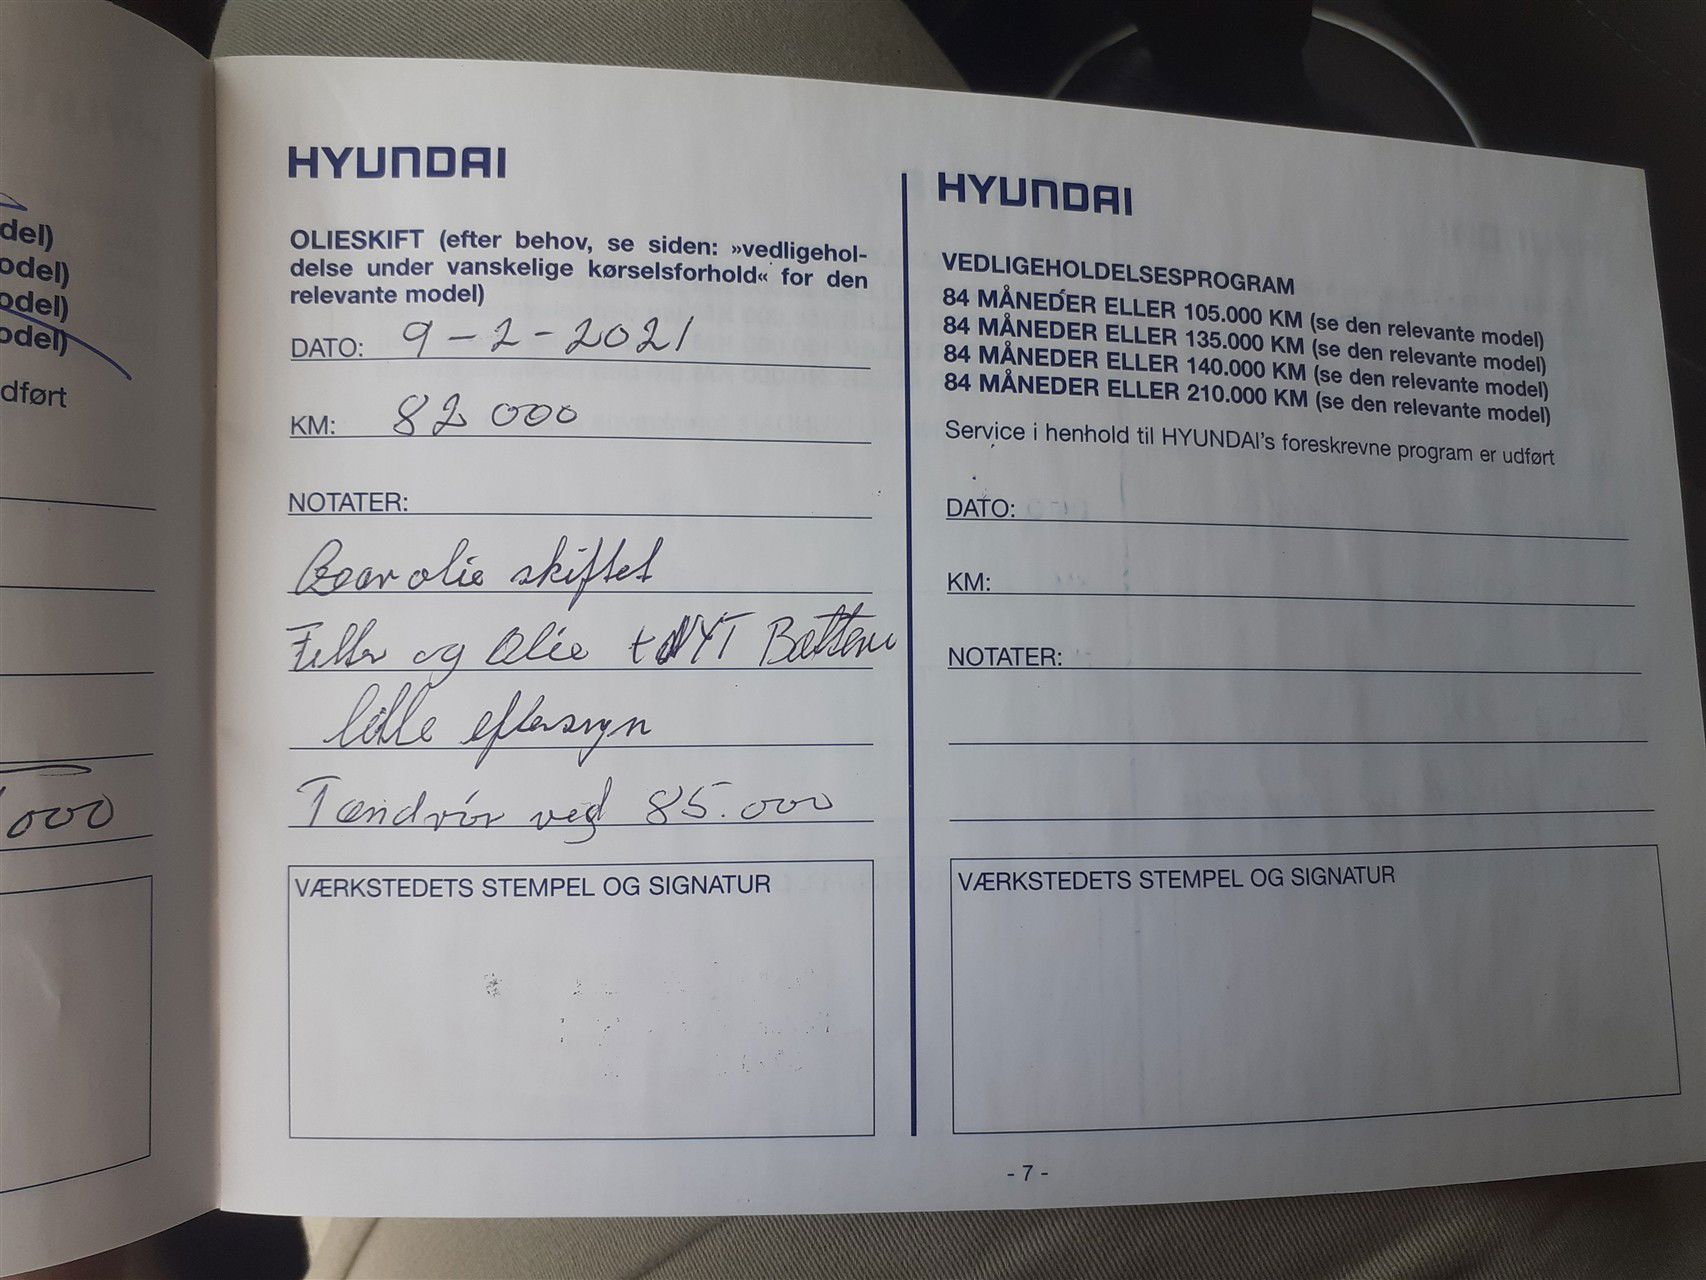 del)
odel)
odel)
odel)
dført
000
HYUNDAI
OLIESKIFT (efter behov, se siden: »vedligehol-
delse under vanskelige kørselsforhold« for den
relevante model)
DATO: 9-2-2021
KM: 82 000
NOTATER:
Gear olie skiftet
Filter og Olie + NYT Batteri
lille eftersyn
Tændrör ved 85.000
VÆRKSTEDETS STEMPEL OG SIGNATUR
HYUNDAI
VEDLIGEHOLDELSESPROGRAM
84 MÅNEDER ELLER 105.000 KM (se den relevante model)
84 MÅNEDER ELLER 135.000 KM (se den relevante model)
84 MÅNEDER ELLER 140.000 KM (se den relevante model)
84 MÅNEDER ELLER 210.000 KM (se den relevante model)
Service i henhold til HYUNDAI's foreskrevne program er udført
DATO:
KM:
NOTATER:
VÆRKSTEDETS STEMPEL OG SIGNATUR
- 7 -